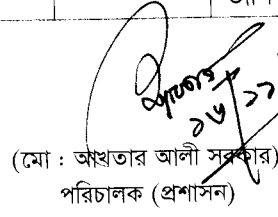 (মো : আখতার আলী সরকার)
পরিচালক (প্রশাসন)